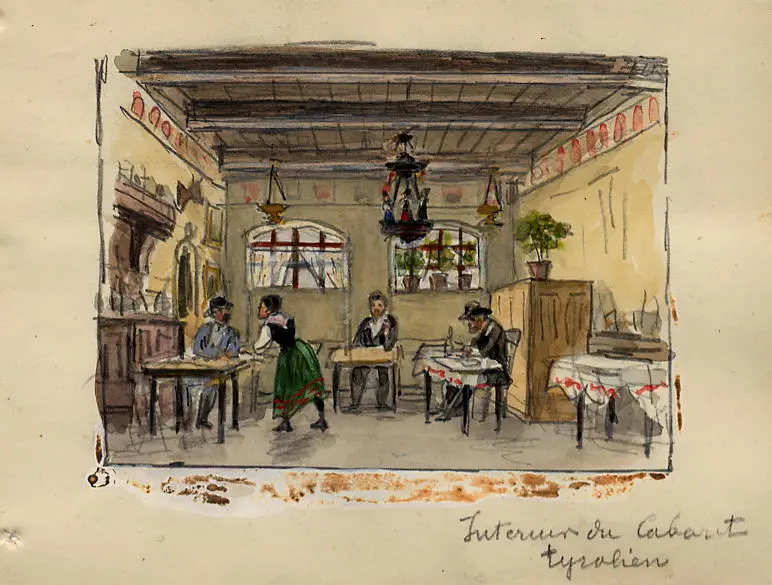 Interieur du Cabaret
tyrolien